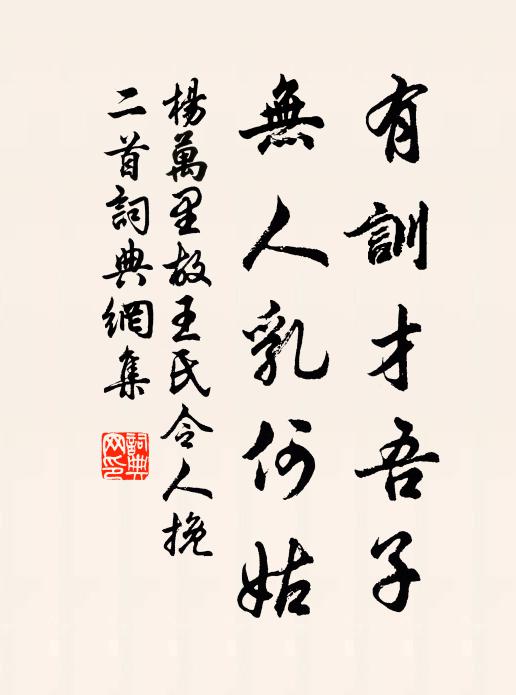 有訓才吾子
無人乳何姑
楊萬里故王氏令人挽
二首詞典網集
詞典
网印